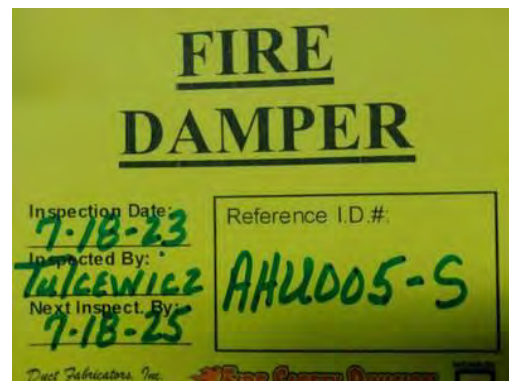 FIRE
DAMPER
Inspection Date:
7-18-23
Inspected By:
Tulcewicz
Next Inspect. By:
7-18-25
Reference I.D.#:
AHU005-S
Duct Fabricators, Inc.
FIRE SAFETY DIVISION